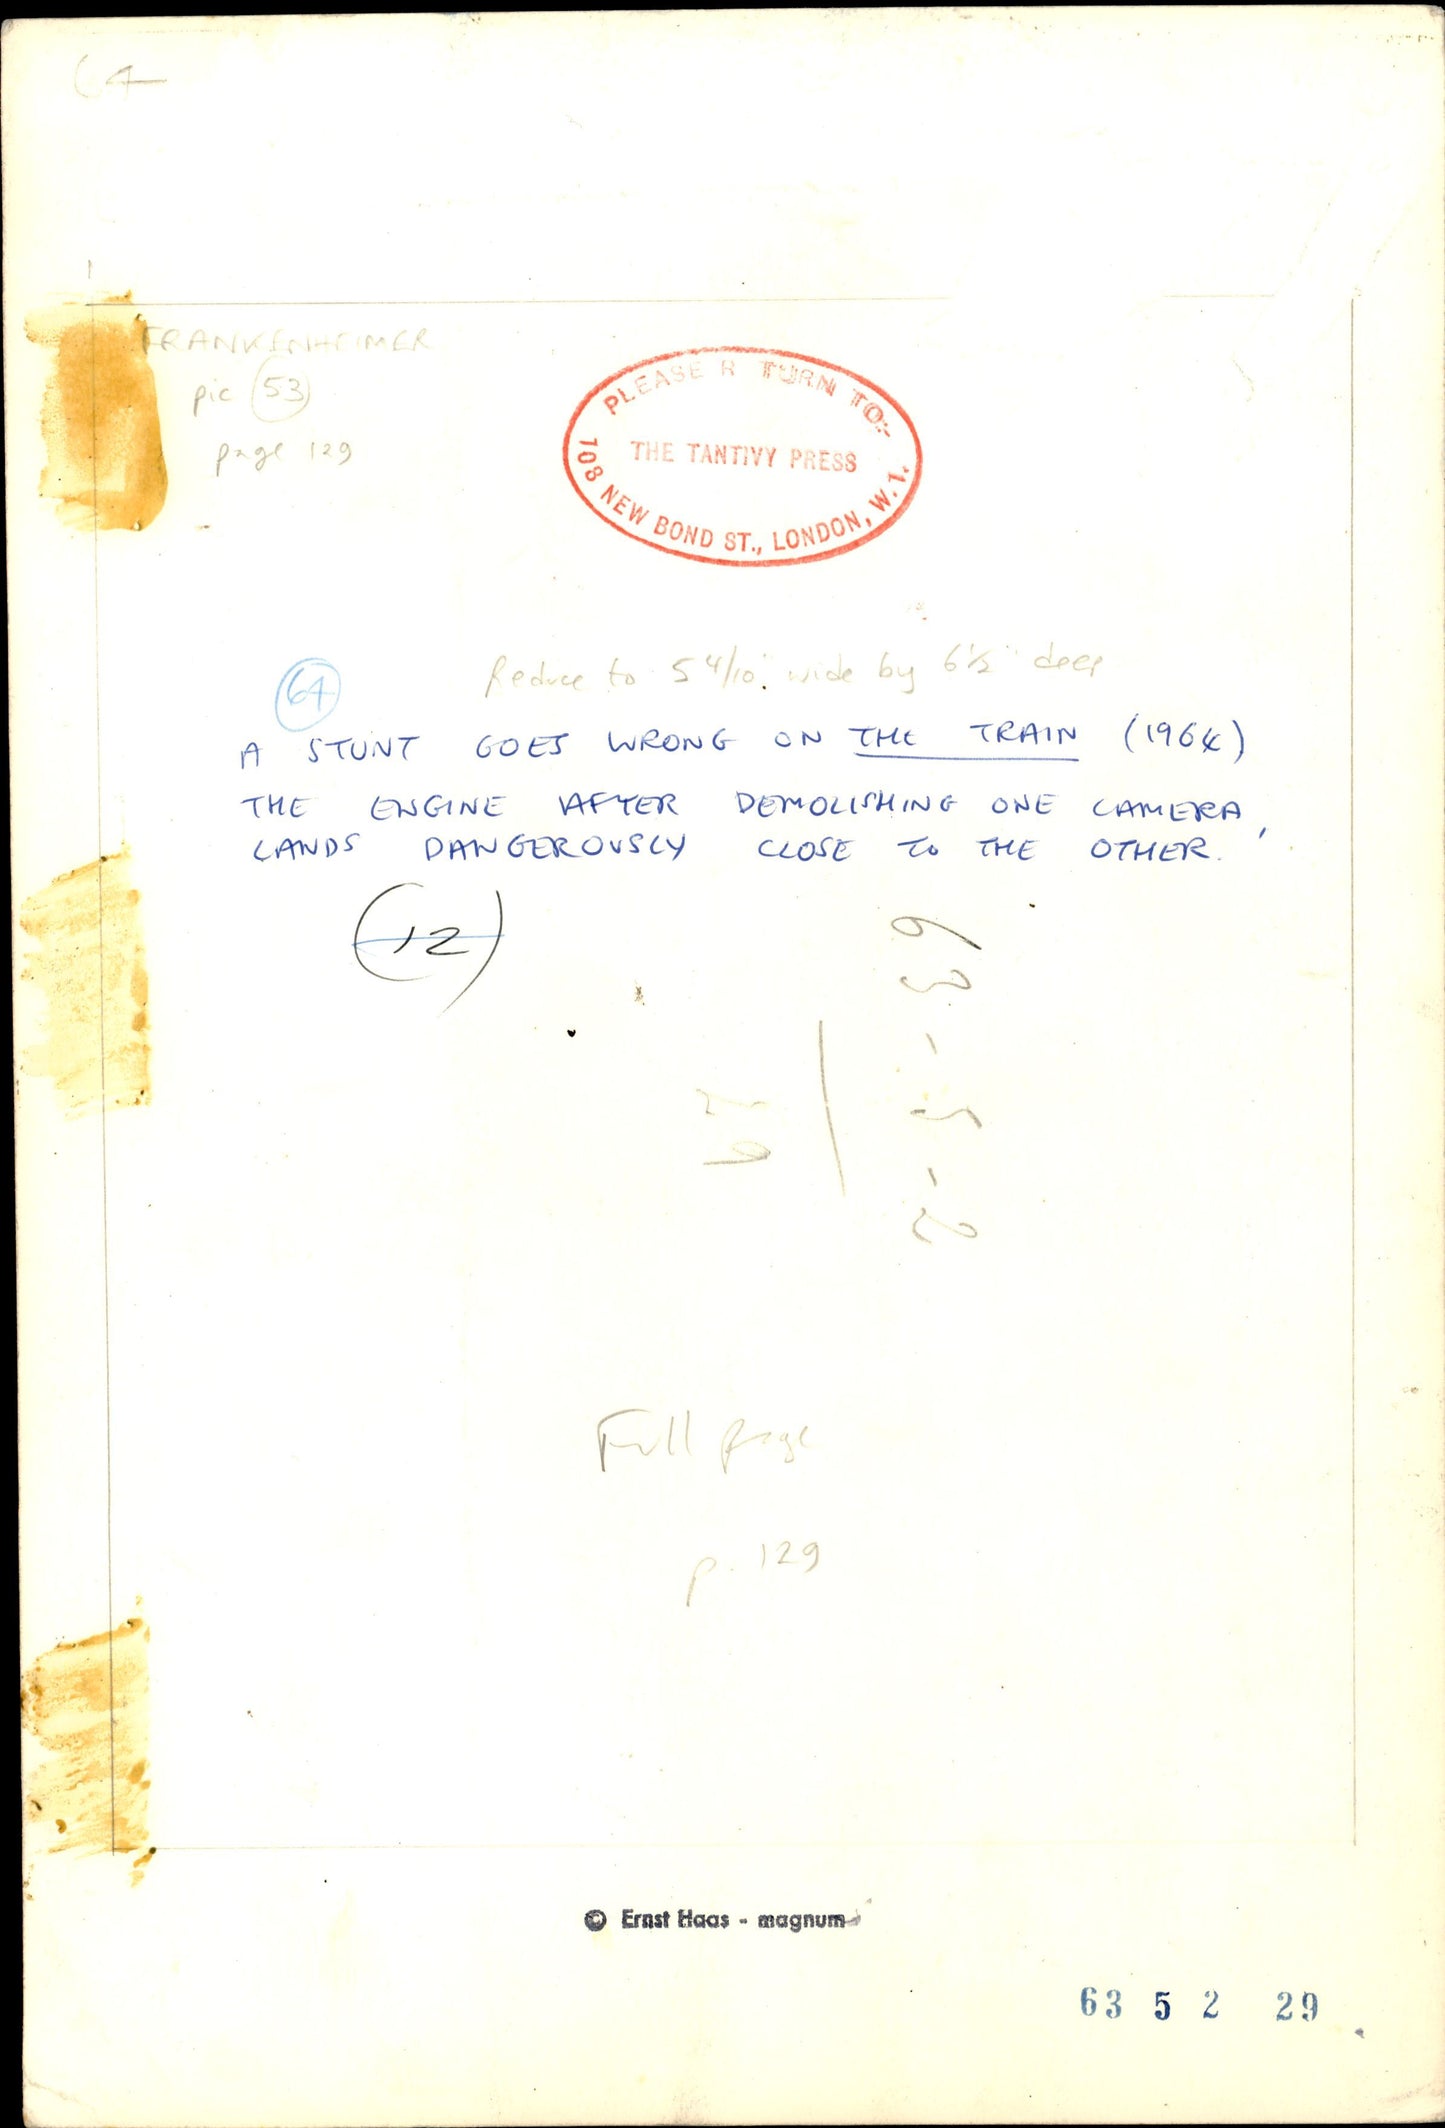 64
FRANKENHEIMER
pic 53
page 129
PLEASE R TURN TO:-
THE TANTIVY PRESS
108 NEW BOND ST., LONDON, W.1.
Reduce to 5 4/10" wide by 6½" deep
64
A STUNT GOES WRONG ON THE TRAIN (1964)
THE ENGINE AFTER DEMOLISHING ONE CAMERA,
LANDS DANGEROUSLY CLOSE TO THE OTHER.
12
Full page
p. 129
© Ernst Haas - magnum
63 5 2 29